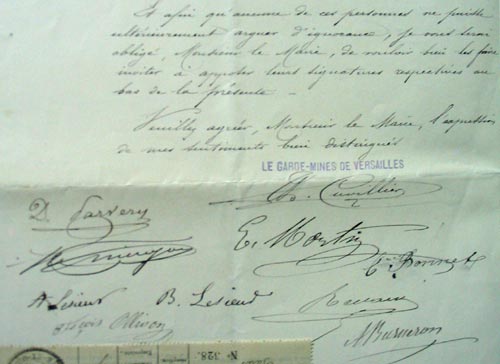 Et afin qu'aucune de ces personnes ne puisse
ultérieurement arguer d'ignorance, je vous serai
obligé, Monsieur le Maire, de vouloir bien les faire
inviter à apposer leurs signatures respectives au
bas de la présente.
Veuillez agréer, Monsieur le Maire, l'expression
de mes sentiments bien distingués
LE GARDE-MINES DE VERSAILLES
Cuvillier
D.
E. Martin
Bonnet
A Lesieur B. Lesieur
Ollivon
No 328.